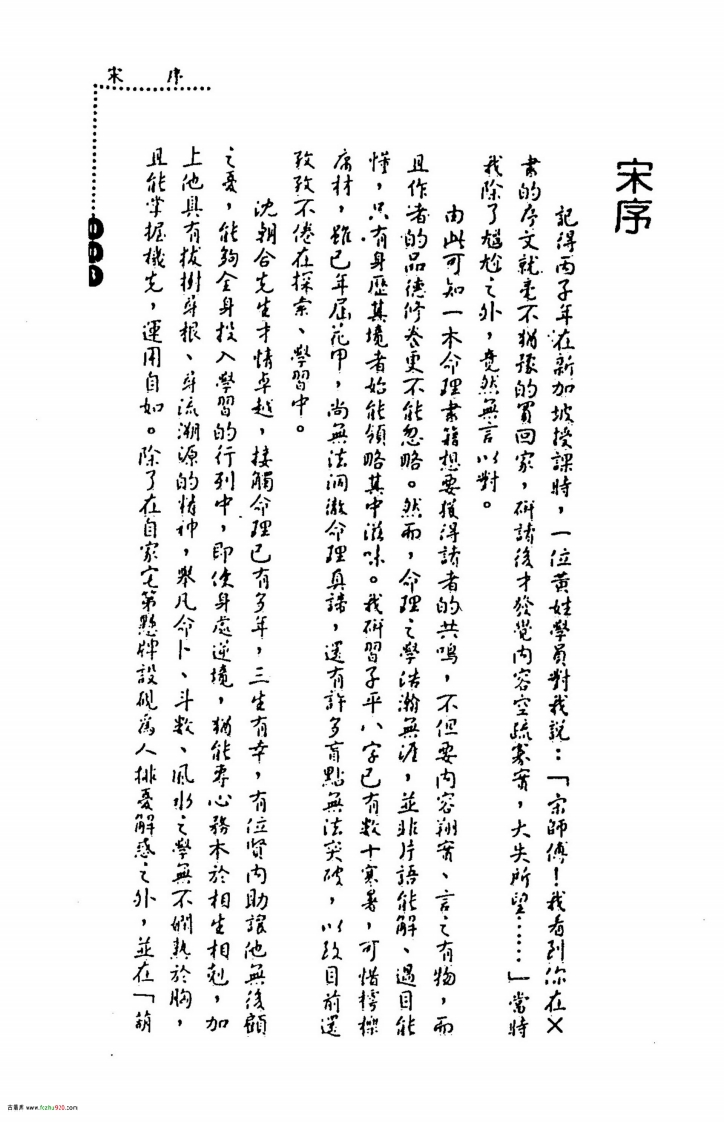 宋序
宋序
記得丙子年在新加坡授課時，一位黃姓學員對我說：「宗師傅！我看到你在×
書的序文就毫不猶豫的買回家，研讀後才發覺內容空疏寡實，大失所望……」當時
我除了尷尬之外，竟然無言以對。
由此可知一本命理書籍想要獲得讀者的共鳴，不但要內容翔實、言之有物，而
且作者的品德修養更不能忽略。然而，命理之學浩瀚無涯，並非片語能解、過目能
懂，只有身歷其境者始能領略其中滋味。我研習子平八字已有數十寒暑，可惜樗櫟
庸材，雖已年屆花甲，尚無法洞澈命理真諦，還有許多盲點無法突破，以致目前還
孜孜不倦在探索、學習中。
沈朝合先生才情卓越，接觸命理已有多年，三生有幸，有位賢內助讓他無後顧
之憂，能夠全身投入學習的行列中，即使身處逆境，猶能專心務本於相生相剋，加
上他具有拔樹尋根、尋流溯源的精神，舉凡命卜、斗數、風水之學無不嫻熟於胸，
且能掌握機先，運用自如。除了在自家宅第懸牌設硯為人排憂解惑之外，並在「葫
古易库 www.fozhu920.com